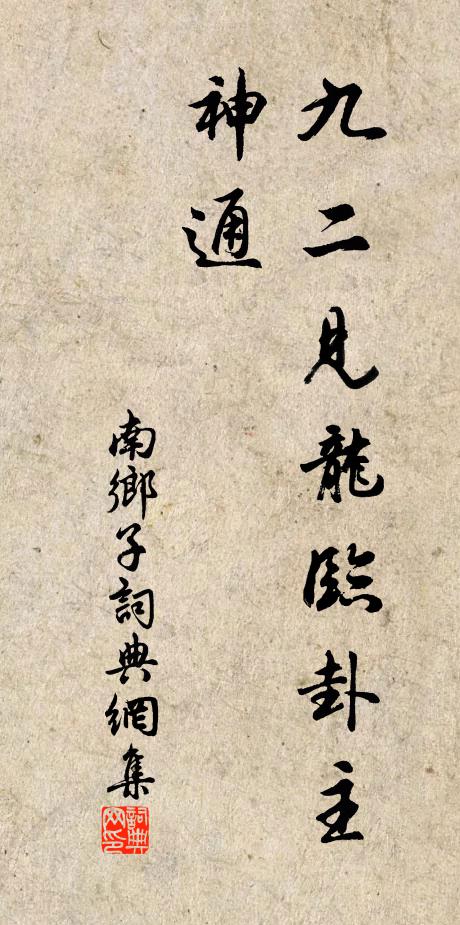 九二見龍臨卦主
神通
南鄉子詞典網集
詞典
网印